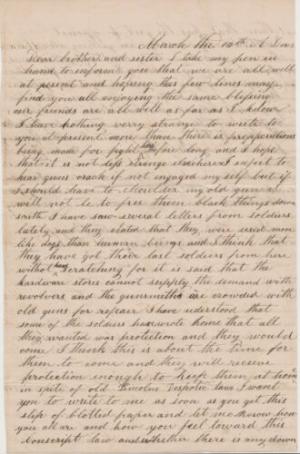 March the 10th A D 1863
Dear brother and sister I take my pen in
hand to inform you that we are all well
at present and hopeing this few lines may
find you all enjoying the same blessing
our friends are all well as far as I know
I have nothing verry strange to write to
you at present more than there is preaperations
being made for fight here before long and I hope
that it is not less strange elsewhere I expect to
hear guns crack if not engaged my self but if
I should have to shoulder my old gun it
will not be to free them black things down
south I have saw several letters from soldiers
lately and they stated that they were used more
like dogs than human beings and I think that
they have got their last soldiers from here
without scratching for it is said that the
hardware stores cannot supply the demand with
revolvers and the gunsmiths are crowded with
old guns for repair I have understood that
some of the soldiers have wrote home that all
they wanted was protection and they would
come I think this is about the time for
them to come and they will receive
protection enough to keep them at home
in spite of old Lincolns Despotic laws I want
you to write to me as soon as you get this
slip of blotted paper and let me know how
you all are and how your feel toward this
conscript law and whether there is any down